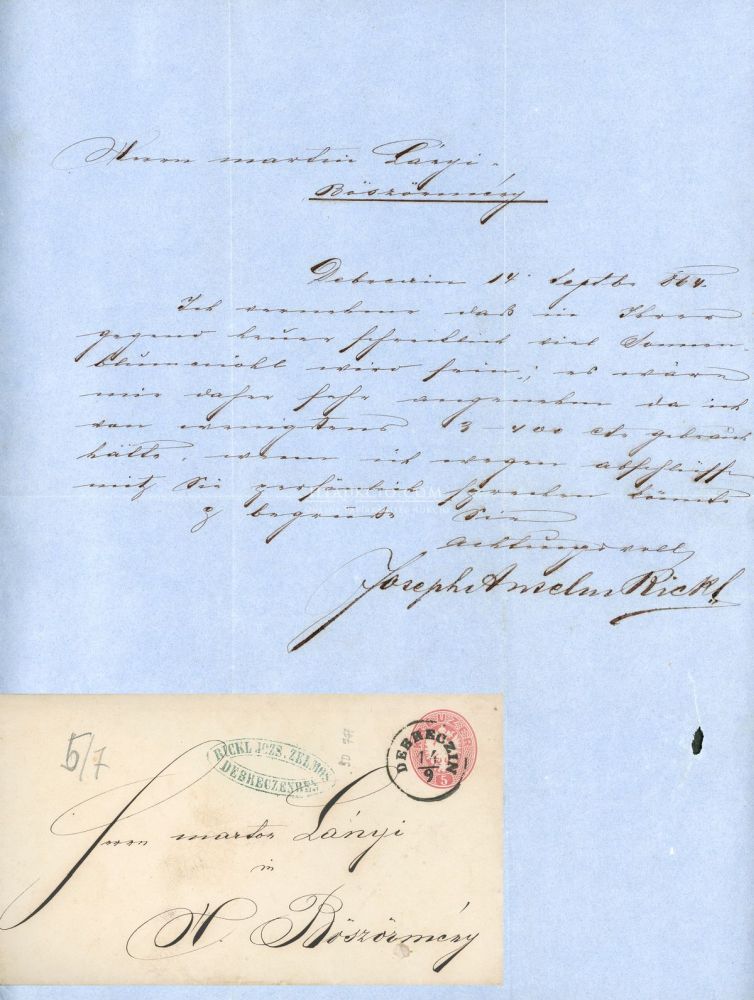 Herrn martin Lányi
Böszörmény
Debreczin 14 Septbr 864
Ich vernehme daß in Ihrer
gegend heuer schreklich viel Sonnen-
blumenöhl wird sein; es wäre
mir daher sehr angenehm da ich
von wenigstens 3-400 Ctr gebrauch
hätte, wenn ich wegen abschlüsse
mit Sie persönlich sprechen könnte
begrüße Sie
achtungsvoll
Joseph Anselm Rickl
5/7
RICKL JÓZS. ZELMOS
DEBRECZENBEN
KREUZER
5
DEBRECZIN
14
9
Herrn martin Lányi
in
H. Böszörmény